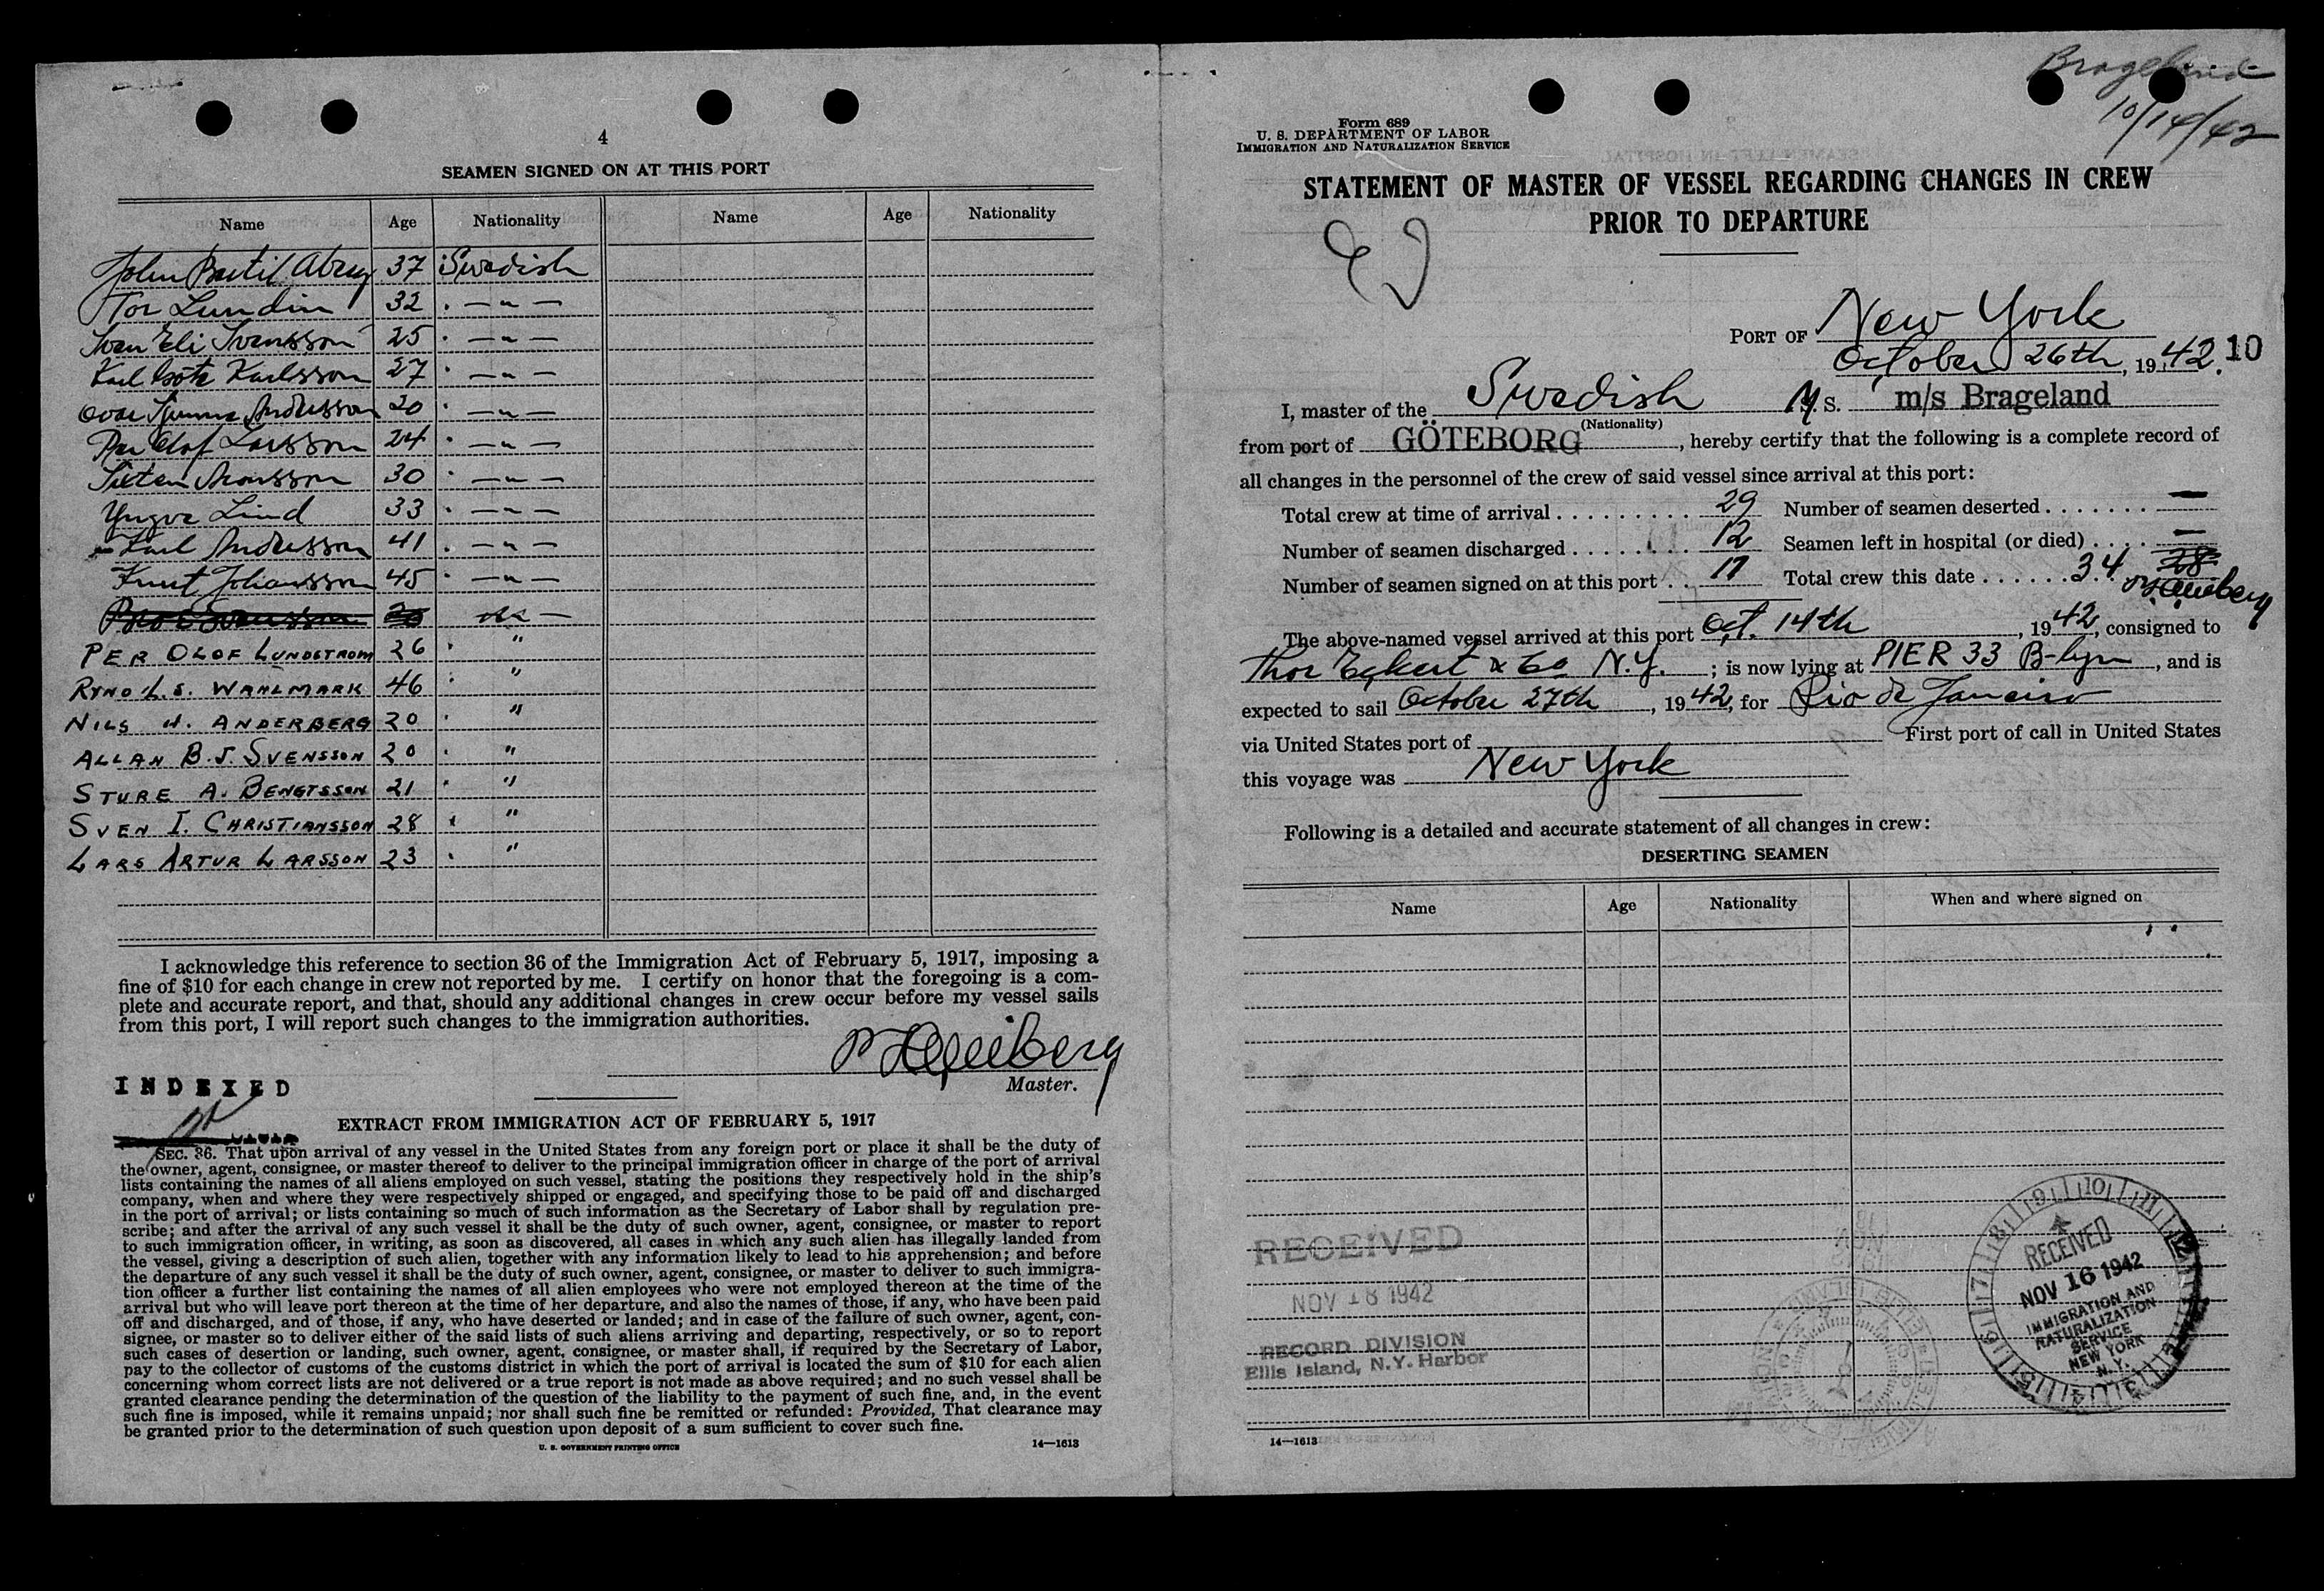 4
SEAMEN SIGNED ON AT THIS PORT
Name Age Nationality Name Age Nationality
John Bertil 37 Swedish
Tor Lundin 32 " — " —
Sven Eli Svensson 25 " — " —
Karl Gösta Karlsson 27 " — " —
Andersson 20 " — " —
Per Olof Larsson 24 " — " —
Sixten Aronsson 30 " — " —
Yngve Lind 33 " — " —
Karl Andersson 41 " — " —
Knut Johansson 45 " — " —
PER OLOF LUNDSTROM 26 "
RYNO L.S. WAHLMARK 46 "
NILS H. ANDERBERG 20 "
ALLAN B.J. SVENSSON 20 "
STURE A. BENGTSSON 21 "
SVEN I. CHRISTIANSSON 28 "
LARS ARTUR LARSSON 23 "
I acknowledge this reference to section 36 of the Immigration Act of February 5, 1917, imposing a
fine of $10 for each change in crew not reported by me. I certify on honor that the foregoing is a com-
plete and accurate report, and that, should any additional changes in crew occur before my vessel sails
from this port, I will report such changes to the immigration authorities.
Master.
INDEXED
EXTRACT FROM IMMIGRATION ACT OF FEBRUARY 5, 1917
SEC. 36. That upon arrival of any vessel in the United States from any foreign port or place it shall be the duty of
the owner, agent, consignee, or master thereof to deliver to the principal immigration officer in charge of the port of arrival
lists containing the names of all aliens employed on such vessel, stating the positions they respectively hold in the ship's
company, when and where they were respectively shipped or engaged, and specifying those to be paid off and discharged
in the port of arrival; or lists containing so much of such information as the Secretary of Labor shall by regulation pre-
scribe; and after the arrival of any such vessel it shall be the duty of such owner, agent, consignee, or master to report
to such immigration officer, in writing, as soon as discovered, all cases in which any such alien has illegally landed from
the vessel, giving a description of such alien, together with any information likely to lead to his apprehension; and before
the departure of any such vessel it shall be the duty of such owner, agent, consignee, or master to deliver to such immigra-
tion officer a further list containing the names of all alien employees who were not employed thereon at the time of the
arrival but who will leave port thereon at the time of her departure, and also the names of those, if any, who have been paid
off and discharged, and of those, if any, who have deserted or landed; and in case of the failure of such owner, agent, con-
signee, or master so to deliver either of the said lists of such aliens arriving and departing, respectively, or so to report
such cases of desertion or landing, such owner, agent, consignee, or master shall, if required by the Secretary of Labor,
pay to the collector of customs of the customs district in which the port of arrival is located the sum of $10 for each alien
concerning whom correct lists are not delivered or a true report is not made as above required; and no such vessel shall be
granted clearance pending the determination of the question of the liability to the payment of such fine, and, in the event
such fine is imposed, while it remains unpaid; nor shall such fine be remitted or refunded: Provided, That clearance may
be granted prior to the determination of such question upon deposit of a sum sufficient to cover such fine.
U. S. GOVERNMENT PRINTING OFFICE 14—1613
Brageland
10/14/42
Form 689
U. S. DEPARTMENT OF LABOR
IMMIGRATION AND NATURALIZATION SERVICE
STATEMENT OF MASTER OF VESSEL REGARDING CHANGES IN CREW
PRIOR TO DEPARTURE
PORT OF New York
October 26th, 1942. 10
I, master of the Swedish M. S. m/s Brageland
(Nationality)
from port of GÖTEBORG, hereby certify that the following is a complete record of
all changes in the personnel of the crew of said vessel since arrival at this port:
Total crew at time of arrival . . . . . . . . . . 29 Number of seamen deserted . . . . . . . —
Number of seamen discharged . . . . . . . . 12 Seamen left in hospital (or died) . . . . —
Number of seamen signed on at this port . . 17 Total crew this date . . . . . . 34 28
The above-named vessel arrived at this port Oct. 14th, 1942, consigned to
Thor Eckert & Co N.Y. ; is now lying at PIER 33 B-lyn, and is
expected to sail October 27th, 1942, for Rio de Janeiro
via United States port of First port of call in United States
this voyage was New York
Following is a detailed and accurate statement of all changes in crew:
DESERTING SEAMEN
Name Age Nationality When and where signed on
RECEIVED
NOV 18 1942
RECORD DIVISION
Ellis Island, N.Y. Harbor
RECEIVED
NOV 16 1942
IMMIGRATION AND
NATURALIZATION
SERVICE
NEW YORK
N.Y.
14—1613